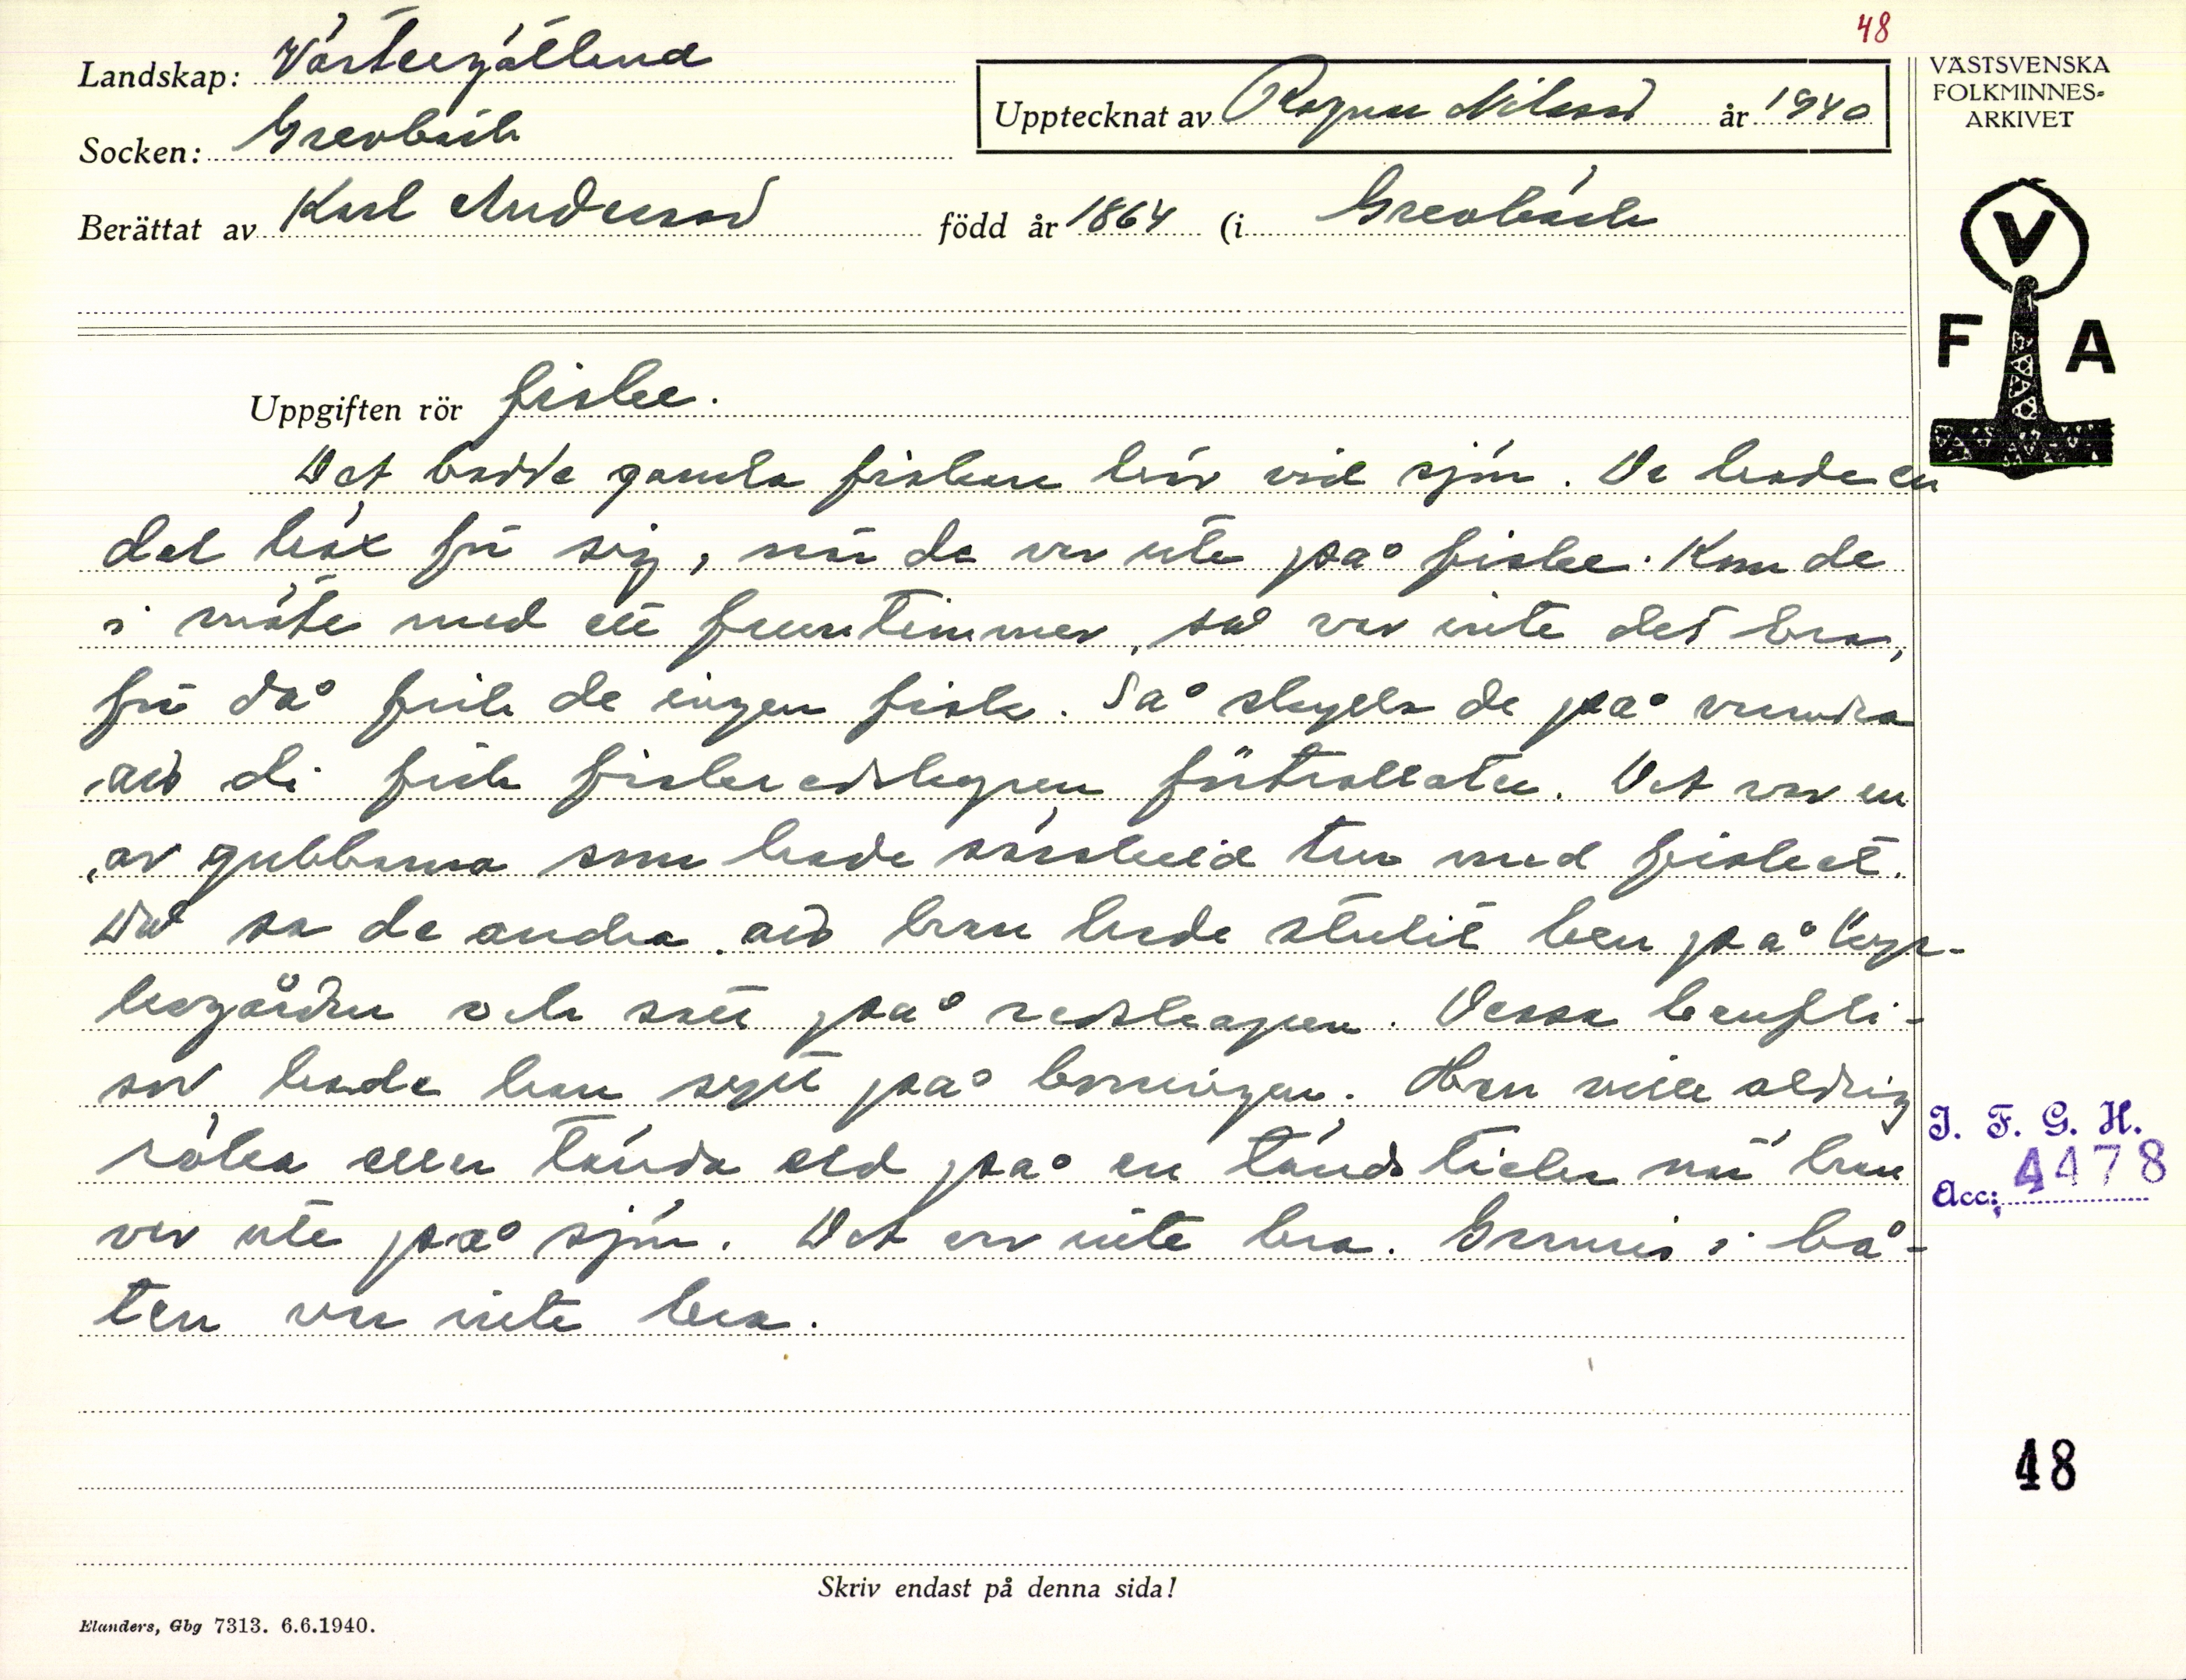 48
Landskap: Västergötland
Upptecknat av Ragnar Nilsson år 1940
Socken: Grevbäck
Berättat av Karl Andersson född år 1864 (i Grevbäck
VÄSTSVENSKA
FOLKMINNES-
ARKIVET
V
F A
Uppgiften rör fiske.
Det bodde gamla fiskare här vid sjön. De hade en
del för sig, när de var ute på fiske. Kom de
i möte med ett fruntimmer, så var inte det bra,
för då fick de ingen fisk. Så skyllde de på varandra
att di fick fiskeredskapen förtrollade. Det var en
av gubbarna som hade särskild tur med fisket.
Då sa de andra att han hade stulit ben på kyr-
kogården och satt på redskapen. Dessa benfli-
sor hade han sytt på. Han ville aldrig
röka eller tända eld på en tändsticka när han
var ute på sjön. Det var inte bra. i bå-
ten var inte bra.
I. F. G. H.
Acc: 4478
48
Skriv endast på denna sida!
Elanders, Gbg 7313. 6.6.1940.